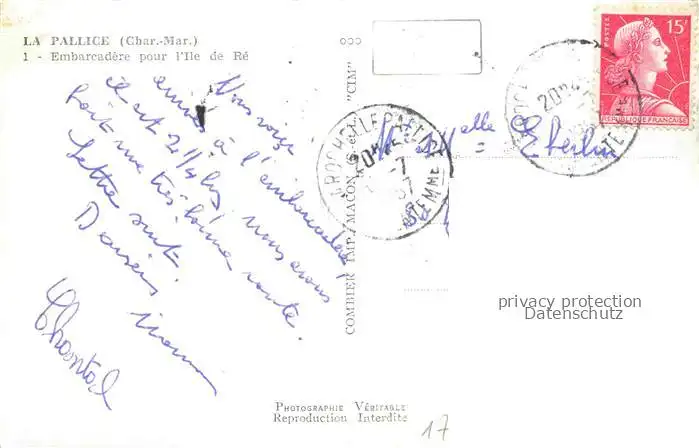 LA PALLICE (Char.-Mar.)
1 - Embarcadère pour l'Ile de Ré
Nous voici
arrivés à l'embarcadère,
il est 2h 1/4, nous avons
fait une très bonne route.
Lettre suit.
Baisers
Chantal
COMBIER IMP. MACON "CIM"
LA ROCHELLE PALLICE
7
57
Melle Eberlin
15F
POSTES
REPUBLIQUE FRANÇAISE
privacy protection
Datenschutz
PHOTOGRAPHIE VÉRITABLE
Reproduction Interdite
17